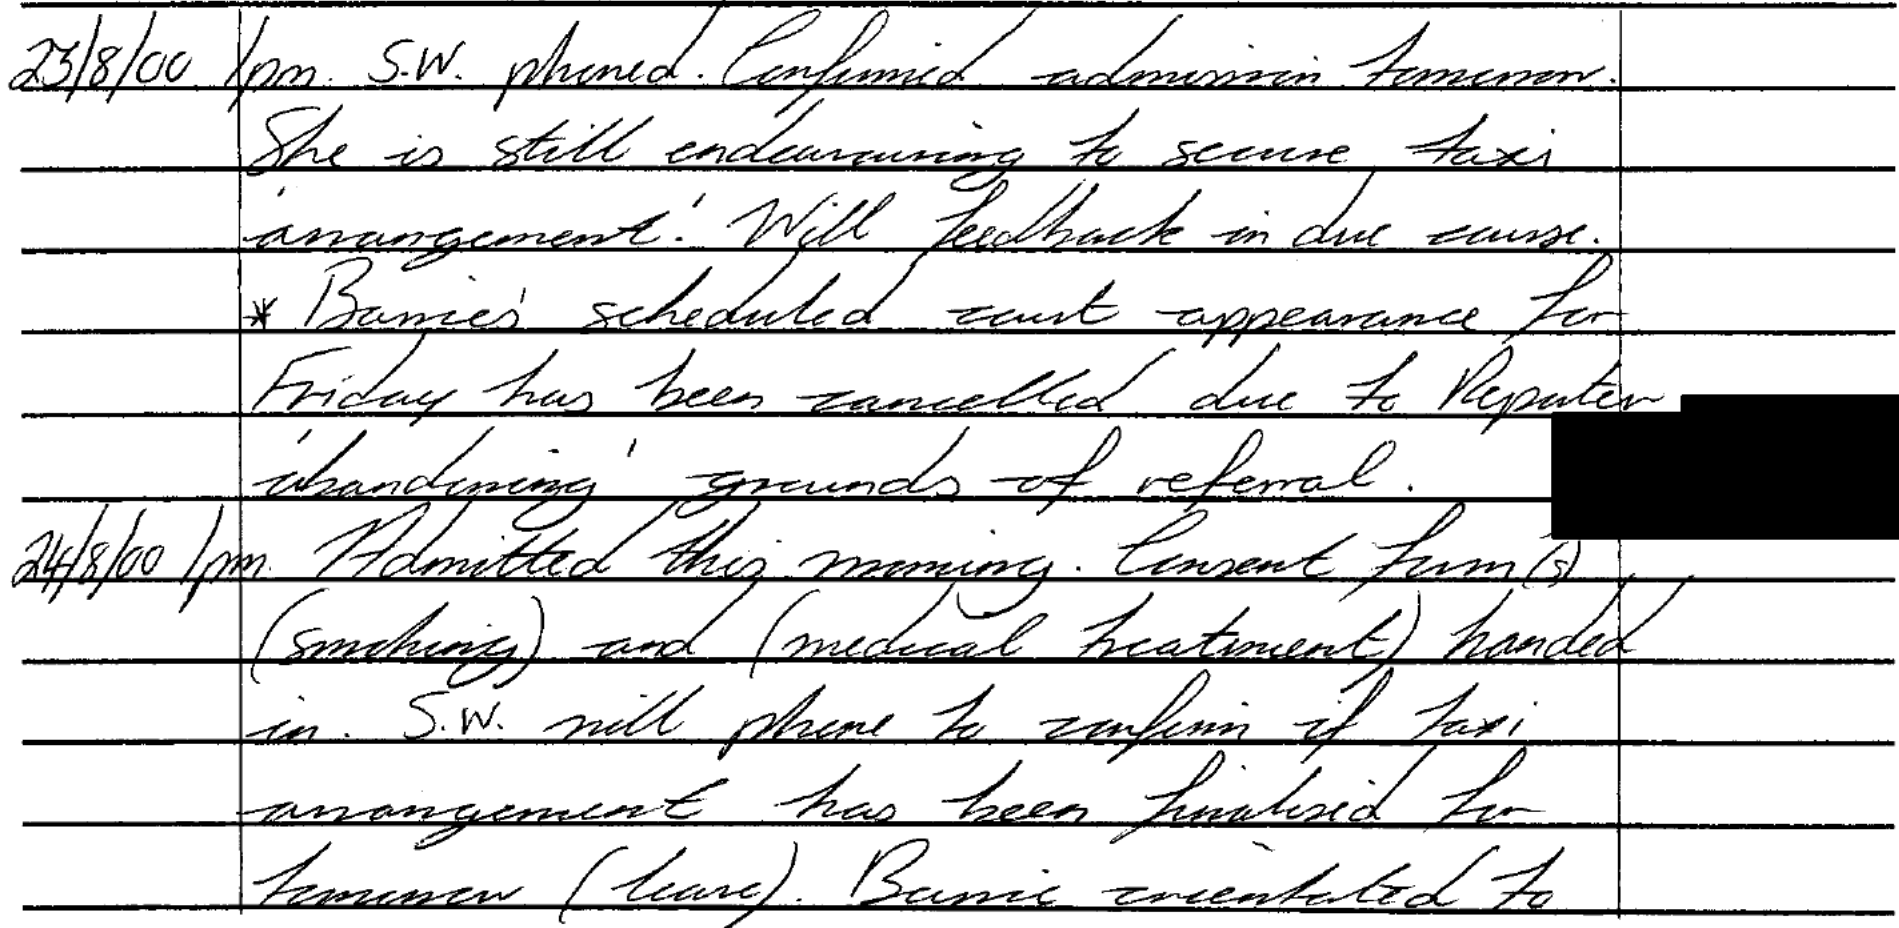 23/8/00 1pm. S.W. phoned. Confirmed admission tomorrow.
She is still endeavouring to secure taxi
'arrangement'. Will feedback in due course.
* Barrie's scheduled court appearance for
Friday has been cancelled due to Reporter
'abandoning' grounds of referral.
24/8/00 1pm. Admitted this morning. Consent form(s)
(smoking) and (medical treatment) handed
in. S.W. will phone to confirm if taxi
arrangement has been finalised for
tomorrow (leave). Barrie orientated to